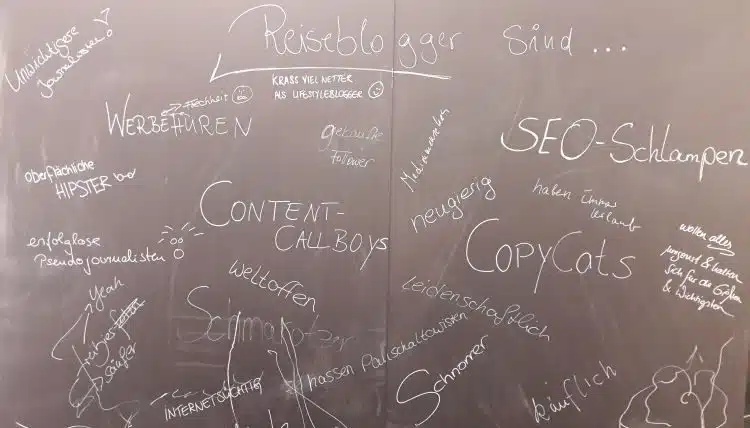 Reiseblogger sind ...
Unwichtigere
Journalisten!
KRASS VIEL NETTER
ALS LIFESTYLEBLOGGER
Frechheit
WERBEHUREN
gekaufte
Follower
SEO-Schlampen
oberflächliche
HIPSTER
neugierig
haben immer
Urlaub
CONTENT-
CALLBOYS
CopyCats
wollen alles
umsonst & halten
sich für die Größten
& Wichtigsten
erfolglose
Pseudojournalisten
weltoffen
Yeah
leidenschaftlich
Schmarotzer
säufer
hassen Pauschaltouristen
Schnorrer
INTERNETSÜCHTIG
käuflich